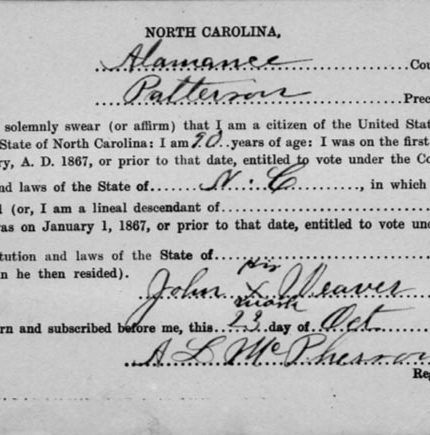 NORTH CAROLINA,
Alamance Cou
Patterson Prec
solemnly swear (or affirm) that I am a citizen of the United Stat
State of North Carolina: I am 90 years of age: I was on the first
ry, A. D. 1867, or prior to that date, entitled to vote under the Co
nd laws of the State of N. C, in which
l (or, I am a lineal descendant of
was on January 1, 1867, or prior to that date, entitled to vote und
itution and laws of the State of
n he then resided).
his
John X Weaver
mark
rn and subscribed before me, this 23 day of Oct.
A L McPherson
Reg